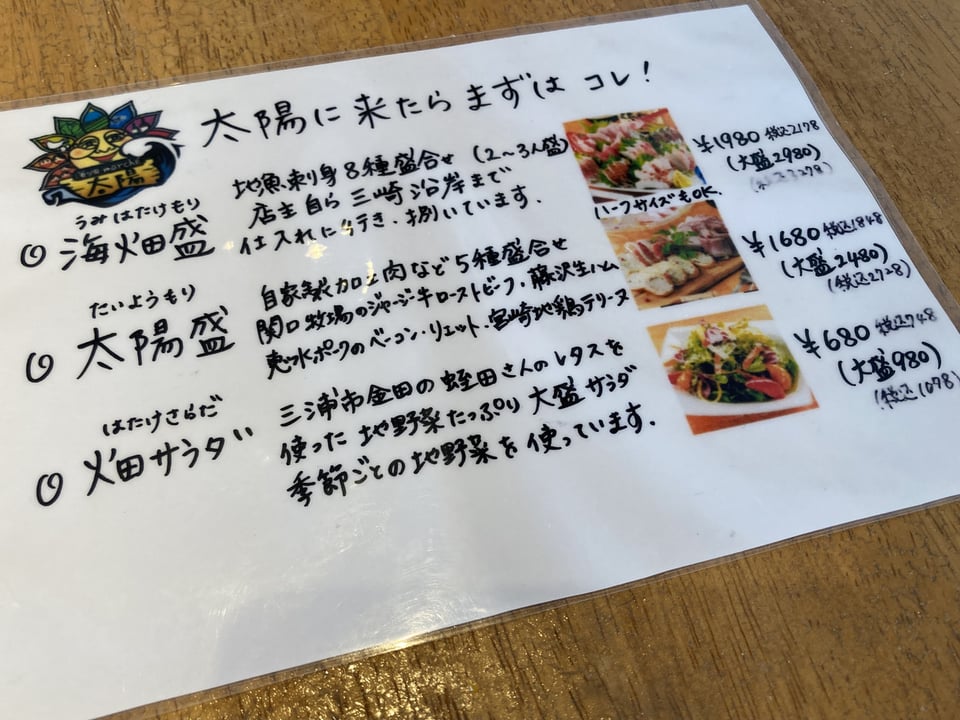 太陽に来たらまずはコレ！
太陽
うみはたけもり
海畑盛
地魚刺身8種盛合せ（2〜3人盛）
店主自ら三崎沿岸まで
仕入れに行き、捌いています.
ハーフサイズもOK.
¥1980 税込2178
（大盛2980）
たいようもり
太陽盛
自家製加工肉など5種盛合せ
関口牧場のジャージー牛ローストビーフ・藤沢生ハム
恵水ポークのベーコン・リエット・宮崎地鶏テリーヌ
¥1680 税込1848
（大盛2480）
（税込2728）
はたけさらだ
畑サラダ
三浦市金田の蛭田さんのレタスを
使った地野菜たっぷり大盛サラダ
季節ごとの地野菜を使っています.
¥680 税込748
（大盛980）
（税込1078）